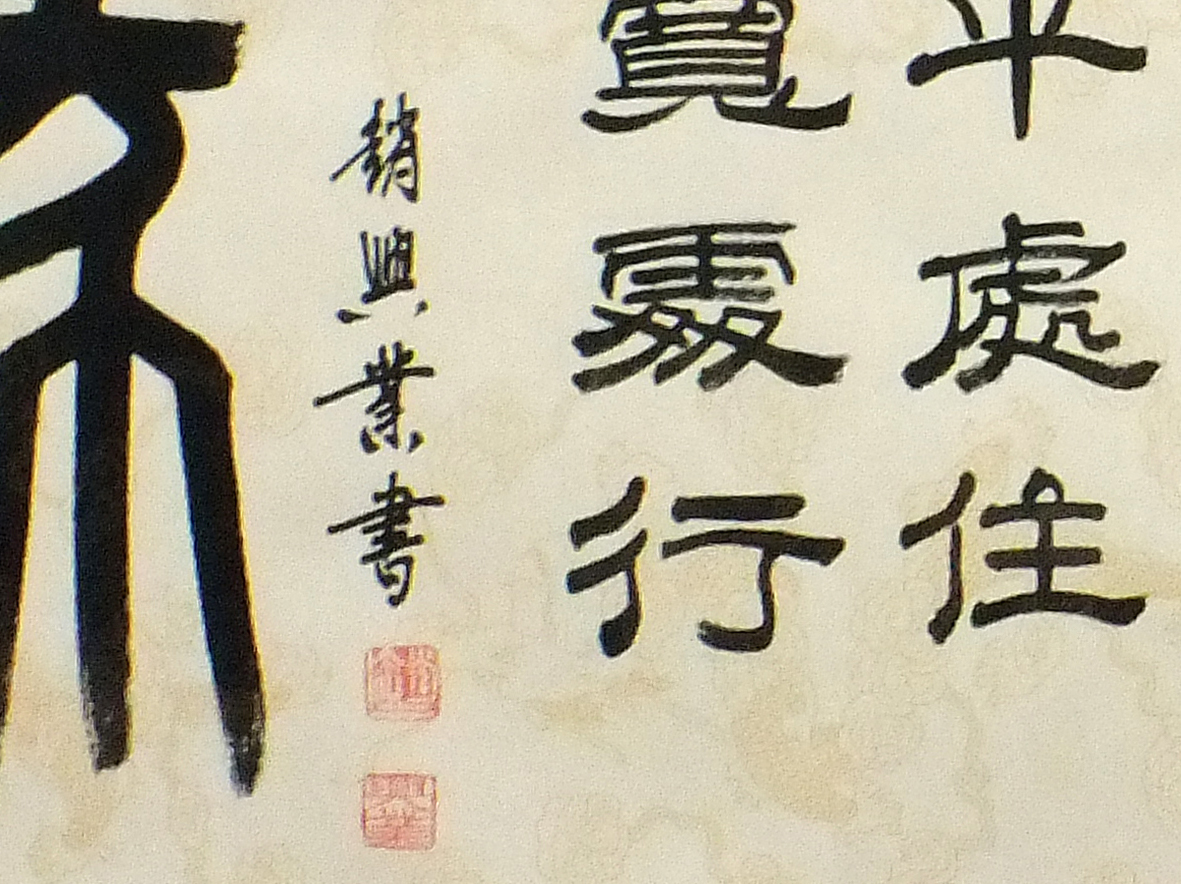 平處住
寬處行
趙興業書